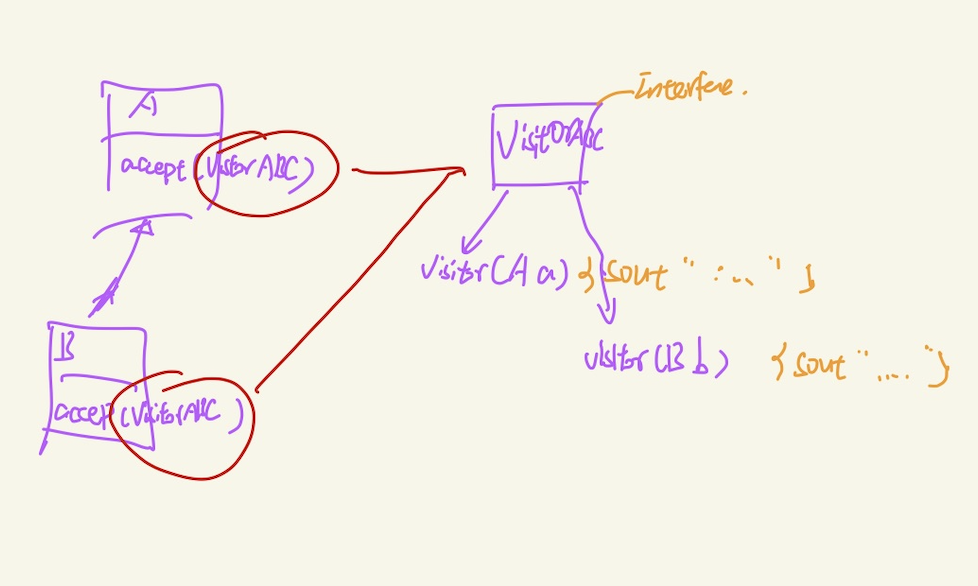 A
accept (VisitorABC)
B
accept (VisitorABC)
Interface.
VisitorABC
visitor (A a) { sout " : ... " }
visitor (B b) { sout " .... " }